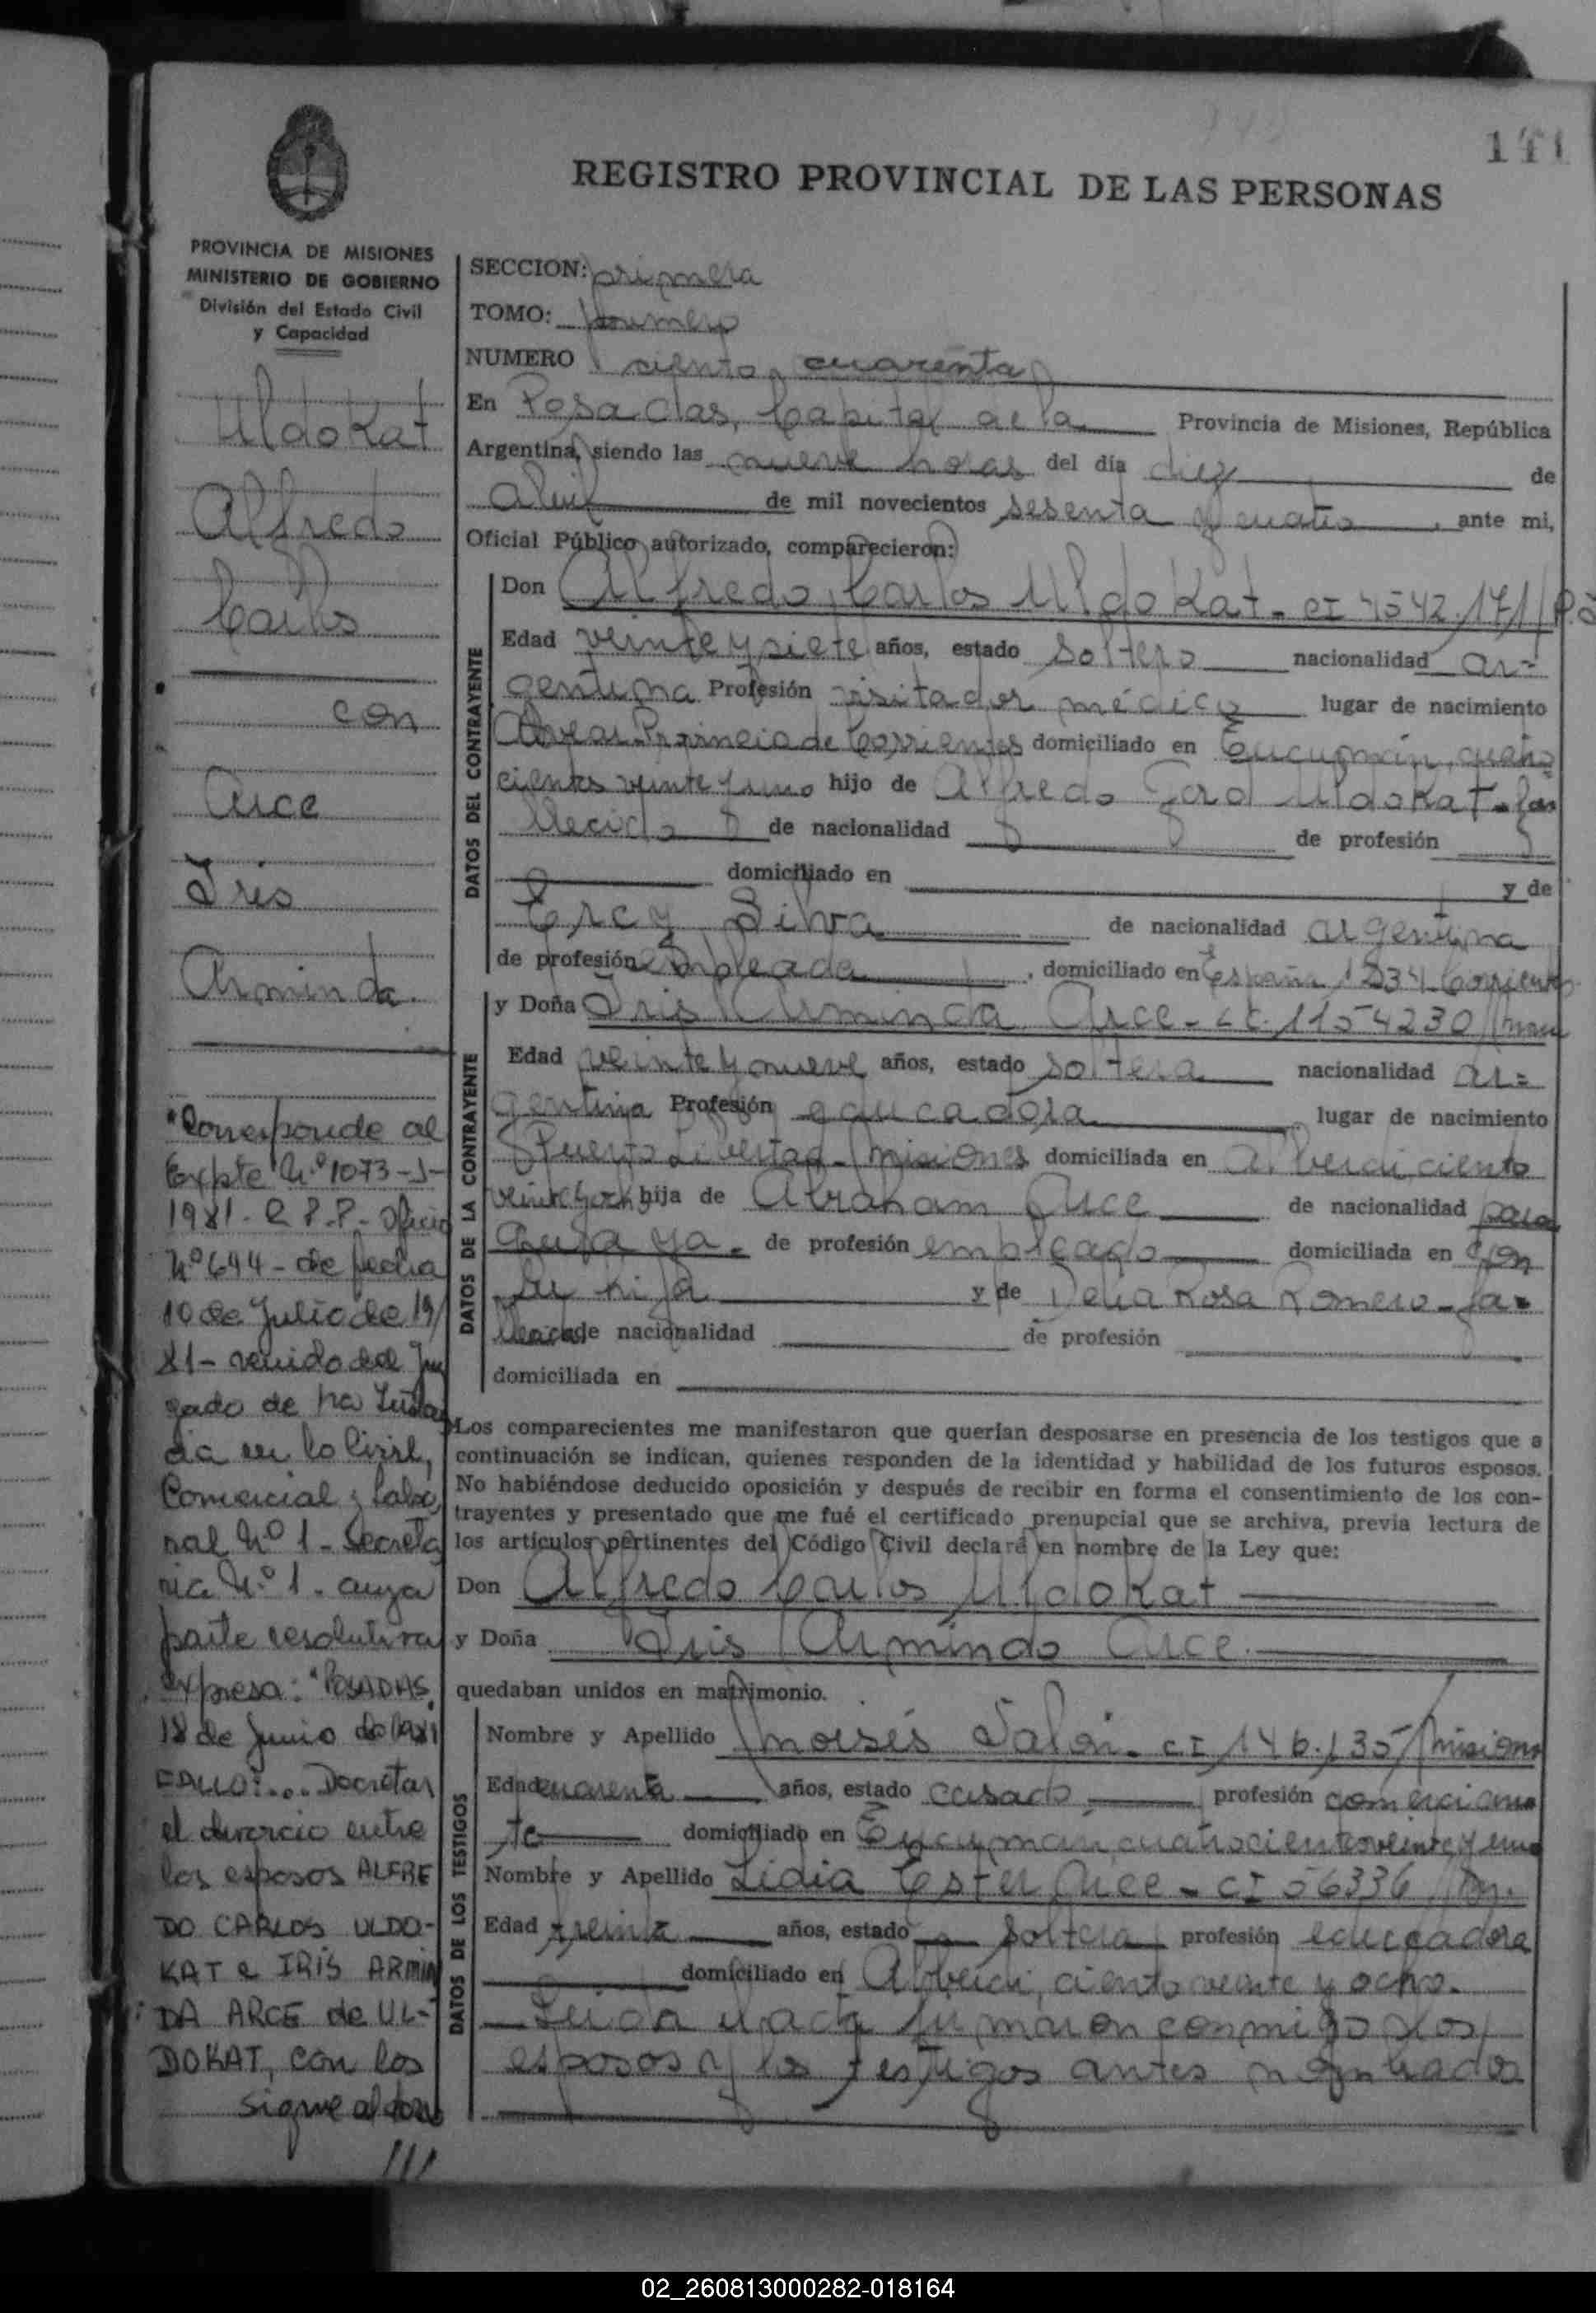 141
REGISTRO PROVINCIAL DE LAS PERSONAS
PROVINCIA DE MISIONES
MINISTERIO DE GOBIERNO
División del Estado Civil
y Capacidad
Uldokat
Alfredo
Carlos
con
Arce
Iris
Arminda.
"Corresponde al
Expte Nº 1073-J-
1981- R.P.P- Oficio
Nº 644- de fecha
10 de Julio de 19/
81- venido del Juz
gado de 1ra Instan
cia en lo Civil,
Comercial y Labo
ral Nº 1 - Secreta
ria Nº 1. cuya
parte resolutiva
expresa: "POSADAS,
18 de Junio de 1981
FALLO:... Decretar
el divorcio entre
los esposos ALFRE
DO CARLOS ULDO-
KAT e IRIS ARMIN
DA ARCE de UL-
DOKAT, con los
sigue al dorso
///
SECCION: primera
TOMO: primero
NUMERO ciento cuarenta
En Posadas, Capital de la Provincia de Misiones, República
Argentina, siendo las nueve horas del día diez de
abril de mil novecientos sesenta y cuatro, ante mi,
Oficial Público autorizado, comparecieron:
DATOS DEL CONTRAYENTE
Don Alfredo Carlos Uldokat- CI 4542.171/
Edad veinte y siete años, estado soltero nacionalidad ar=
gentina Profesión visitador médico lugar de nacimiento
Alvear Provincia de Corrientes domiciliado en Tucumán, cuatro
cientos veinte y uno hijo de Alfredo Uldokat- fa=
llecido de nacionalidad de profesión
domiciliado en y de
Ercy Silva de nacionalidad argentina
de profesión Empleada, domiciliado en España 1234 Corrientes
DATOS DE LA CONTRAYENTE
y Doña Iris Arminda Arce- LC. 1154230/
Edad veinte y nueve años, estado soltera nacionalidad ar=
gentina Profesión educadora lugar de nacimiento
Puerto Libertad- Misiones domiciliada en Alberdi, ciento
veinte y ocho hija de Abraham Arce de nacionalidad para
guaya- de profesión empleado domiciliada en con
su hija y de Delia Rosa Romero- fa=
llecida de nacionalidad de profesión
domiciliada en
Los comparecientes me manifestaron que querían desposarse en presencia de los testigos que a
continuación se indican, quienes responden de la identidad y habilidad de los futuros esposos.
No habiéndose deducido oposición y después de recibir en forma el consentimiento de los con-
trayentes y presentado que me fué el certificado prenupcial que se archiva, previa lectura de
los artículos pertinentes del Código Civil declaré en nombre de la Ley que:
Don Alfredo Carlos Uldokat
y Doña Iris Arminda Arce
quedaban unidos en matrimonio.
DATOS DE LOS TESTIGOS
Nombre y Apellido Moisés CI 146.135/Misiones
Edad cuarenta años, estado casado profesión comercian
te domiciliado en Tucumán, cuatrocientos veinte y uno
Nombre y Apellido Lidia Ester Arce- CI 56336/
Edad treinta años, estado soltera profesión educadora
domiciliado en Alberdi, ciento veinte y ocho.
Leida el acta firmaron conmigo los
esposos y los testigos antes nombrados
02_260813000282-018164